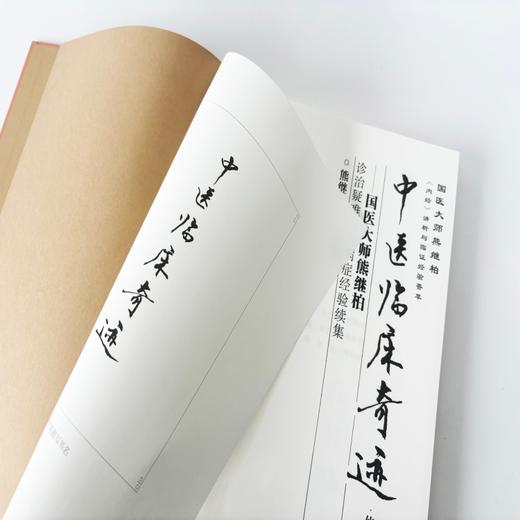 中医临床奇迹
国医大师熊继柏
《内经》讲析与临证经验荟萃
中医临床奇迹
国医大师熊继柏
诊治疑难
症经验续集
◎熊继